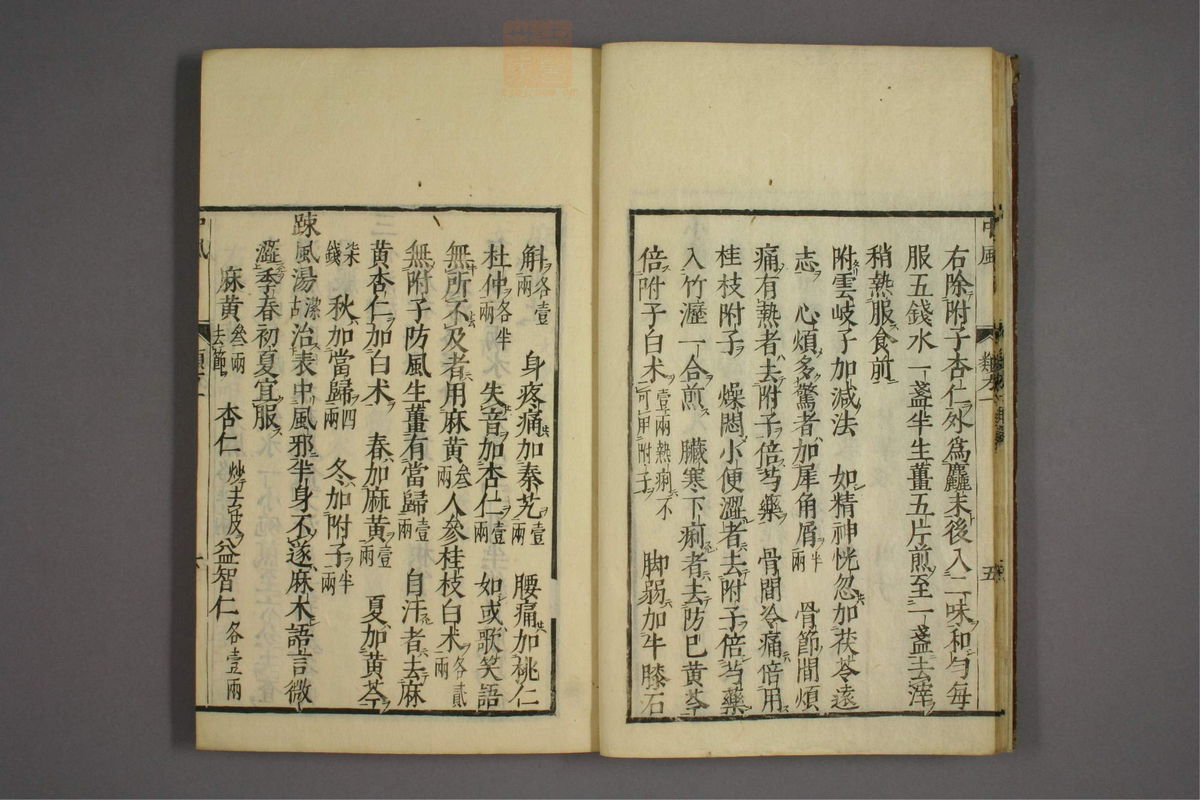 右除附子杏仁外爲麤末後入二味和勻每
服五錢水一盞半生薑五片煎至一盞去滓
稍熱服食前
附雲岐子加減法　如精神恍忽加茯苓遠
志　心煩多驚者加犀角屑半兩　骨節間煩
痛有熱者去附子倍芍藥　骨間冷痛倍用
桂枝附子　燥悶小便澀者去附子倍芍藥
入竹瀝一合煎　臟寒下痢者去防已黃芩
倍附子白术壹兩熱痢不可用附子　脚弱加牛膝石
斛各壹兩　身疼痛加秦艽壹兩　腰痛加桃仁
杜仲各半兩　失音加杏仁壹兩　如或歌笑語
無所不及者用麻黃叁兩人參桂枝白术各貳兩
無附子防風生薑有當歸壹兩　自汗者去麻
黃杏仁加白术　春加麻黃壹兩　夏加黃芩
柒錢　秋加當歸四兩　冬加附子半兩
踈風湯潔古治表中風邪半身不遂麻木語言微
澀季春初夏宜服
麻黃叁兩去節　杏仁炒去皮　益智仁各壹兩
中風
五